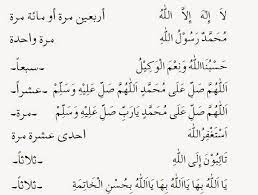 لَا إِلٰهَ إِلَّا اللهُ أربعين مرة أو مائة مرة
مُحَمَّدٌ رَسُوْلُ اللهِ مرة واحدة
حَسْبُنَااللهُ وَنِعْمَ الْوَكِيْلُ -سبعاً-
اَللّٰهُمَّ صَلِّ عَلَى مُحَمَّدٍ اَللّٰهُمَّ صَلِّ عَلَيْهِ وَسَلِّمْ -عشراً-
اَللّٰهُمَّ صَلِّ عَلَى مُحَمَّدٍ يَارَبِّ صَلِّ عَلَيْهِ وَسَلِّمْ -مرة-
اَسْتَغْفِرُاللهَ احدى عشرة مرة
تَائِبُوْنَ إِلَى اللهِ -ثلاثاً-
يَااَللهُ بِهَا يَااَللهُ بِهَا يَااَللهُ بِحُسْنِ الْخَاتِمَةِ -ثلاثاً-